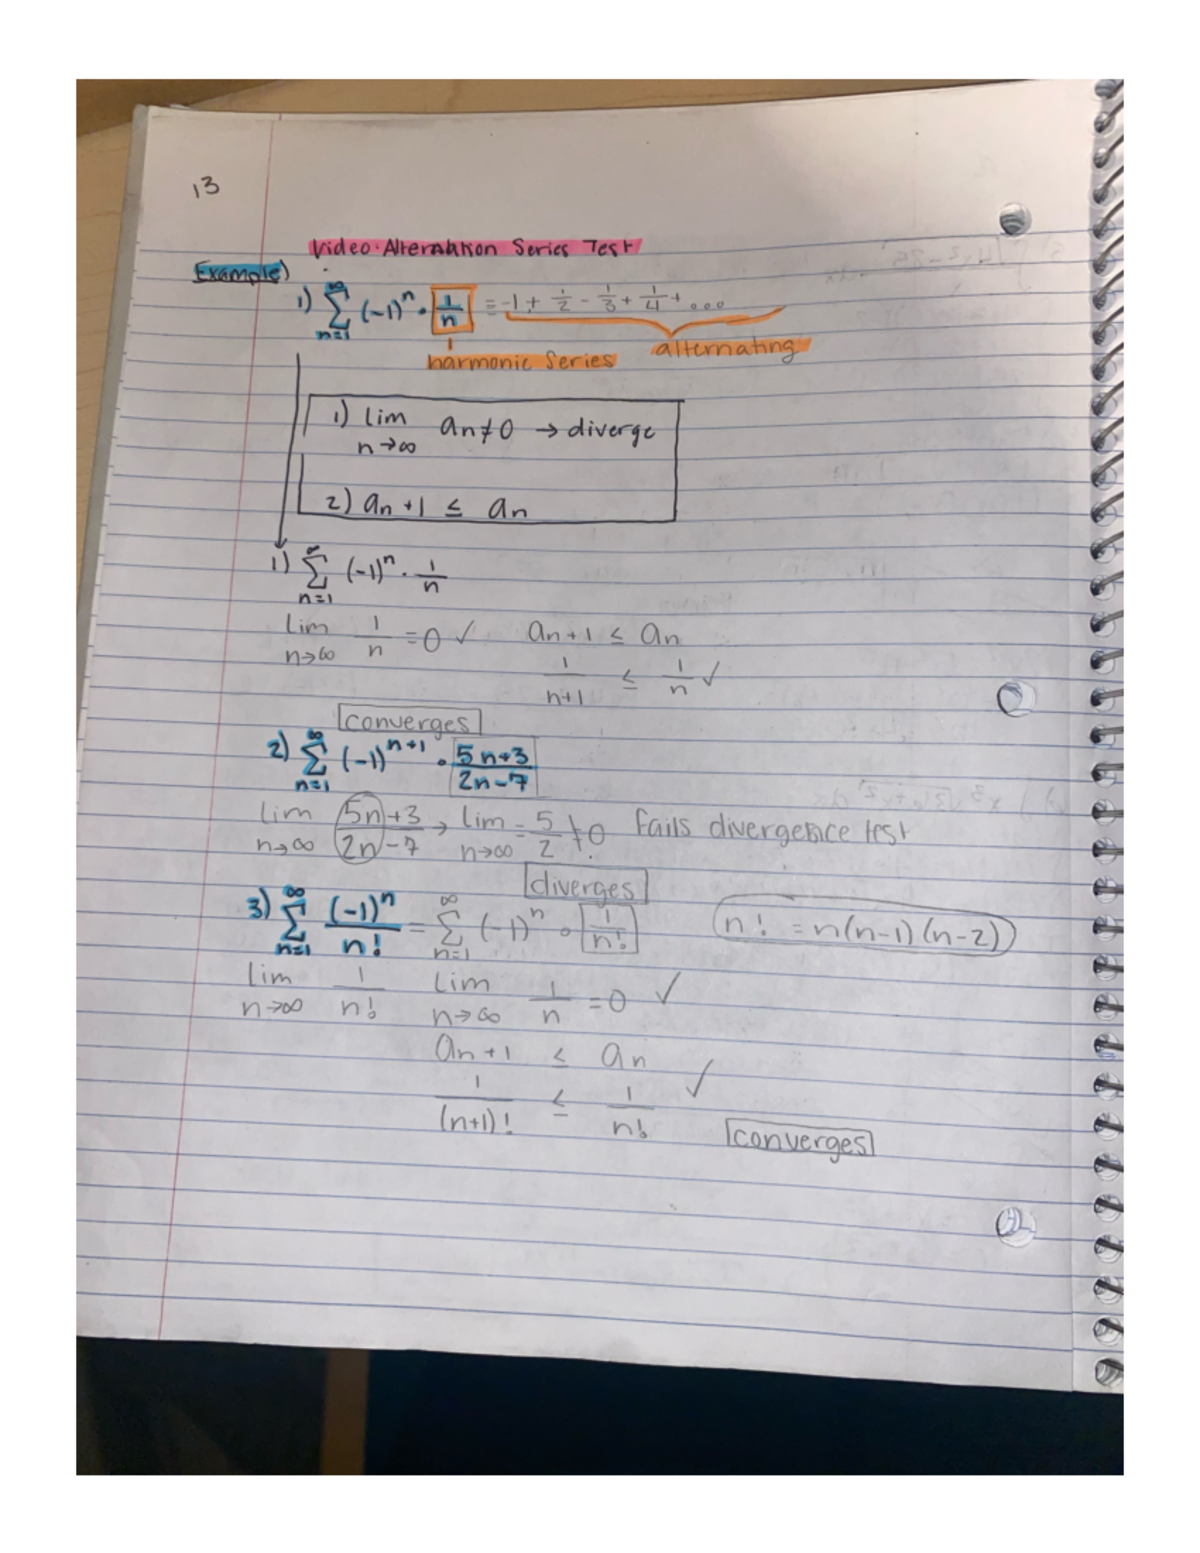 13
Video: Alternation Series Test
Example)
1) ∞ Σ n=1 (-1)^n · 1/n = -1 + 1/2 - 1/3 + 1/4 + ...
harmonic Series alternating
1) lim n→∞ an ≠ 0 → diverge
2) an+1 ≤ an
1) ∞ Σ n=1 (-1)^n · 1/n
lim n→∞ 1/n = 0 ✓ an+1 ≤ an
1/n+1 ≤ 1/n ✓
converges
2) ∞ Σ n=1 (-1)^n+1 · 5n+3/2n-7
lim n→∞ 5n+3/2n-7 → lim n→∞ = 5/2 ≠ 0 fails divergence test
diverges
3) ∞ Σ n=1 (-1)^n/n! = ∞ Σ n=1 (-1)^n · 1/n! n! = n(n-1)(n-2)
lim n→∞ 1/n! lim n→∞ 1/n = 0 ✓
an+1 ≤ an
1/(n+1)! ≤ 1/n! ✓
converges